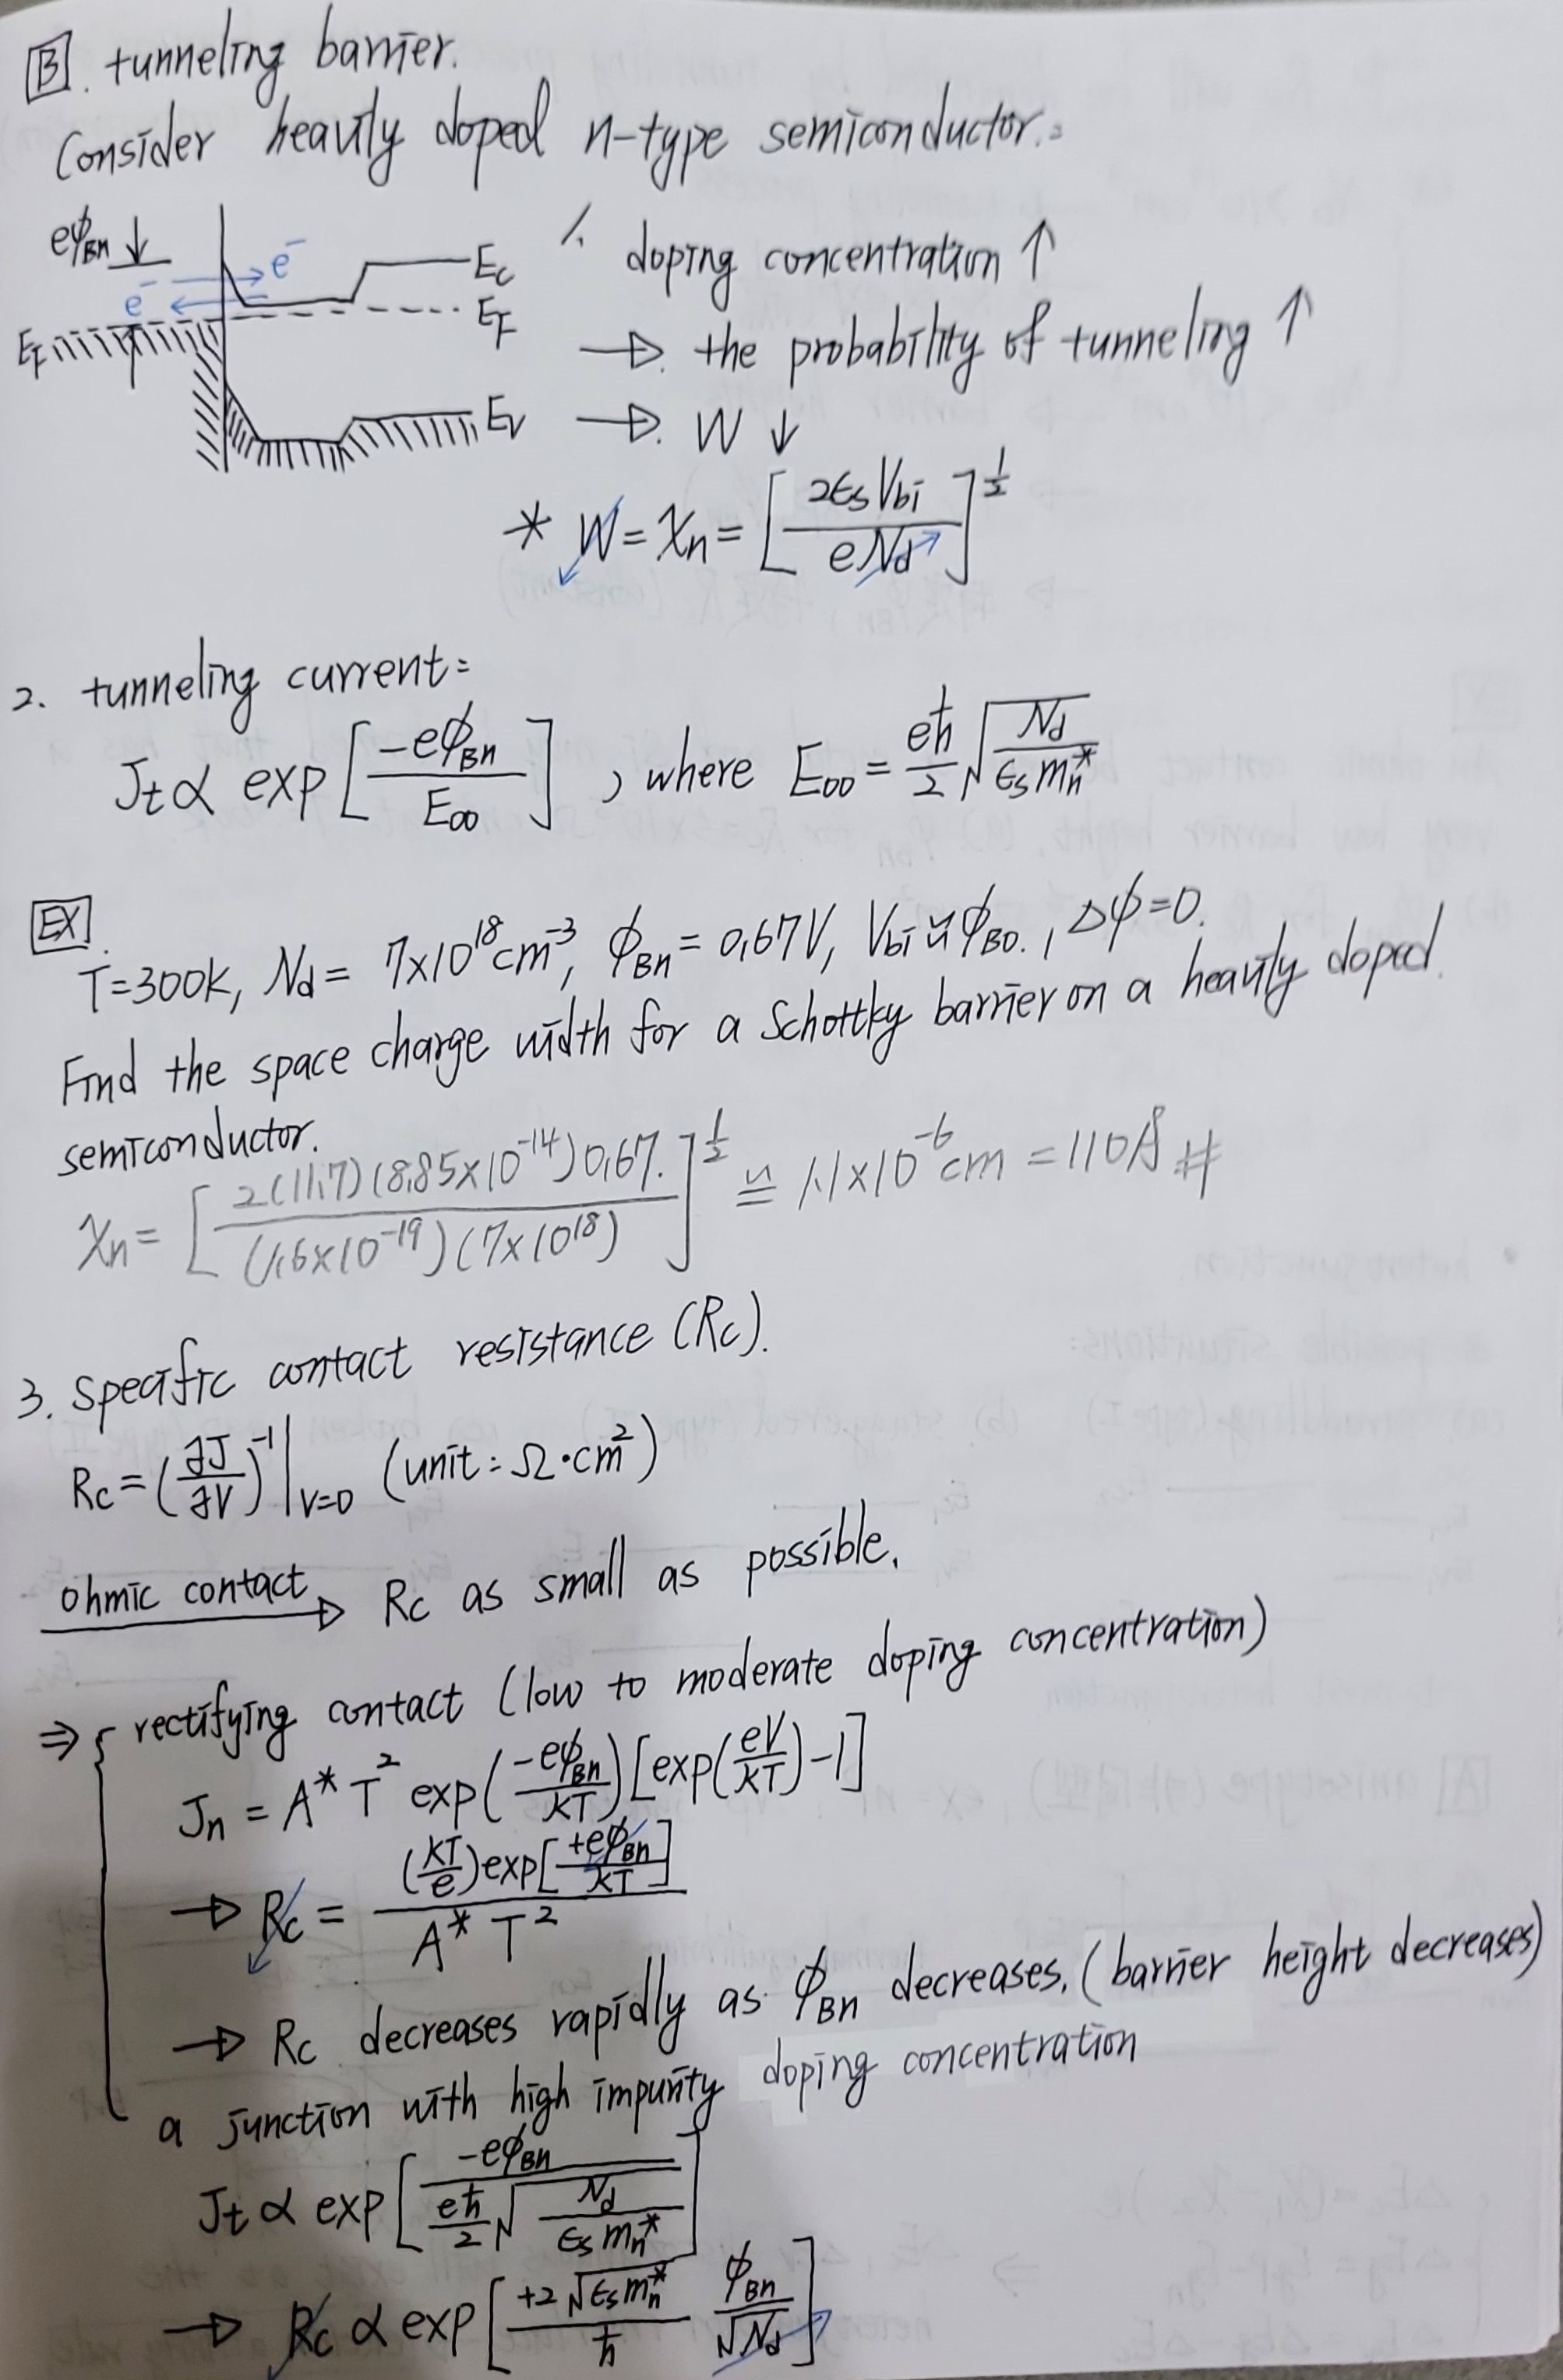 [B]. tunneling barrier.
Consider heavily doped n-type semiconductor:
eϕBn ↓
e⁻
e⁻
Ec
EF
EF
Ev
1. doping concentration ↑
→ the probability of tunneling ↑
→ W ↓
* W = xn = [2ϵsVbi / eNd]^(1/2)
2. tunneling current:
Jt ∝ exp[-eϕBn / E00], where E00 = (eħ/2)√(Nd / ϵs mn*)
[EX].
T=300K, Nd = 7×10^18 cm^-3, ϕBn = 0.67V, Vbi ≈ ϕB0., Δϕ=0.
Find the space charge width for a Schottky barrier on a heavily doped
semiconductor.
xn = [2(11.7)(8.85×10^-14)0.67. / (1.6×10^-19)(7×10^18)]^(1/2) ≅ 1.1×10^-6 cm = 110Å #
3. specific contact resistance (Rc).
Rc = (∂J/∂V)^-1 |V=0 (unit: Ω·cm²)
ohmic contact → Rc as small as possible.
⇒ { rectifying contact (low to moderate doping concentration)
Jn = A* T² exp(-eϕBn / kT)[exp(eV/kT)-1]
→ Rc = (kT/e)exp[+eϕBn / kT] / A* T²
→ Rc decreases rapidly as ϕBn decreases. (barrier height decreases)
a junction with high impurity doping concentration
Jt ∝ exp[-eϕBn / (eħ/2)√(Nd / ϵs mn*)]
→ Rc ∝ exp[+2√(ϵs mn*) / ħ · ϕBn / √Nd]